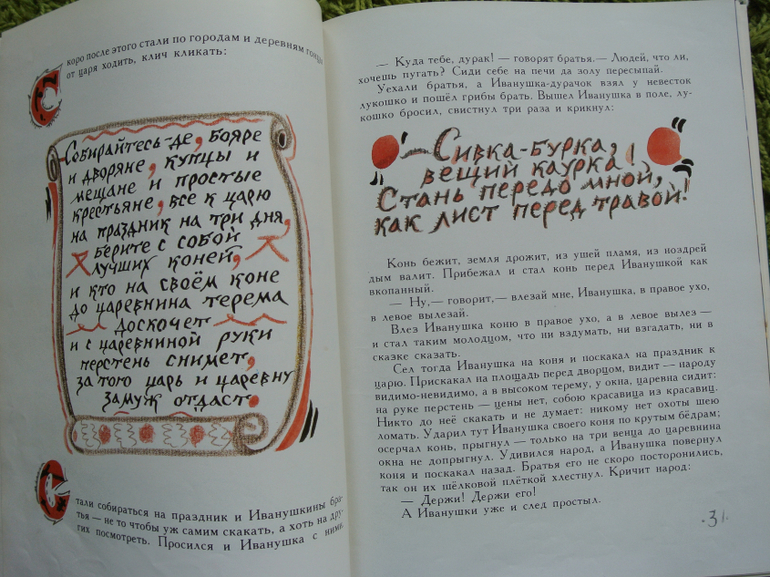 Скоро после этого стали по городам и деревням гонцы
от царя ходить, клич кликать:
Собирайтесь-де, бояре
и дворяне, купцы и
мещане и простые
крестьяне, все к царю
на праздник на три дня,
берите с собой
лучших коней,
и кто на своём коне
до царевнина терема
доскочет
и с царевниной руки
перстень снимет,
за того царь и царевну
замуж отдаст.
Стали собираться на праздник и Иванушкины бра-
тья — не то чтобы уж самим скакать, а хоть на дру-
гих посмотреть. Просился и Иванушка с ними.
— Куда тебе, дурак! — говорят братья.— Людей, что ли,
хочешь пугать? Сиди себе на печи да золу пересыпай.
Уехали братья, а Иванушка-дурачок взял у невесток
лукошко и пошёл грибы брать. Вышел Иванушка в поле, лу-
кошко бросил, свистнул три раза и крикнул:
— Сивка-бурка,
вещий каурка!
Стань передо мной,
как лист перед травой!
Конь бежит, земля дрожит, из ушей пламя, из ноздрей
дым валит. Прибежал и стал конь перед Иванушкой как
вкопанный.
— Ну,— говорит,— влезай мне, Иванушка, в правое ухо,
в левое вылезай.
Влез Иванушка коню в правое ухо, а в левое вылез —
и стал таким молодцом, что ни вздумать, ни взгадать, ни в
сказке сказать.
Сел тогда Иванушка на коня и поскакал на праздник к
царю. Прискакал на площадь перед дворцом, видит — народу
видимо-невидимо, а в высоком терему, у окна, царевна сидит:
на руке перстень — цены нет, собою красавица из красавиц.
Никто до неё скакать и не думает: никому нет охоты шею
ломать. Ударил тут Иванушка своего коня по крутым бёдрам;
осерчал конь, прыгнул — только на три венца до царевнина
окна не допрыгнул. Удивился народ, а Иванушка повернул
коня и поскакал назад. Братья его не скоро посторонились,
так он их шёлковой плёткой хлестнул. Кричит народ:
— Держи! Держи его!
А Иванушки уже и след простыл.
31